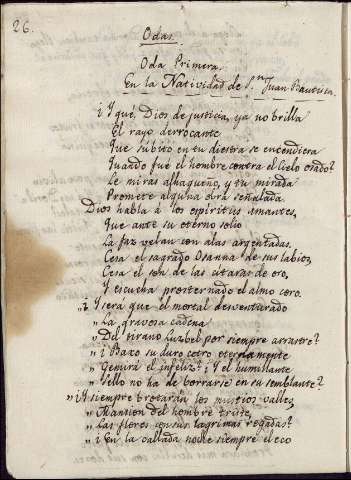 26.
Odas.
Oda Primera.
En la Natividad de S.n Juan Bautista.
¿I qué, Dios de justicia, ya no brilla
El rayo derrocante
Que súbito en tu diestra se encendiera
Quando fué el hombre contra el Cielo osado?
Le miras alhagueño, y tu mirada
Promete alguna obra señalada.
Dios habla á los espíritus amantes,
Que ante su eterno solio
La faz velan con alas argentadas.
Cesa el sagrado Osanna de sus labios,
Cesa el son de las cítaras de oro,
I escucha prosternado el almo coro.
"¿I será que el mortal desventurado
"La gravosa cadena
"Del tirano Luzbel por siempre arrastre?
"¿I baxo su duro cetro eternamente
"Gemirá el infeliz? ¿I el humillante
"Sello no ha de borrarse en su semblante?
"¿I siempre brotarán los mustios valles,
"Mansion del hombre triste,
"Las flores con sus lagrimas regadas?
"¿I en la callada noche siempre el eco